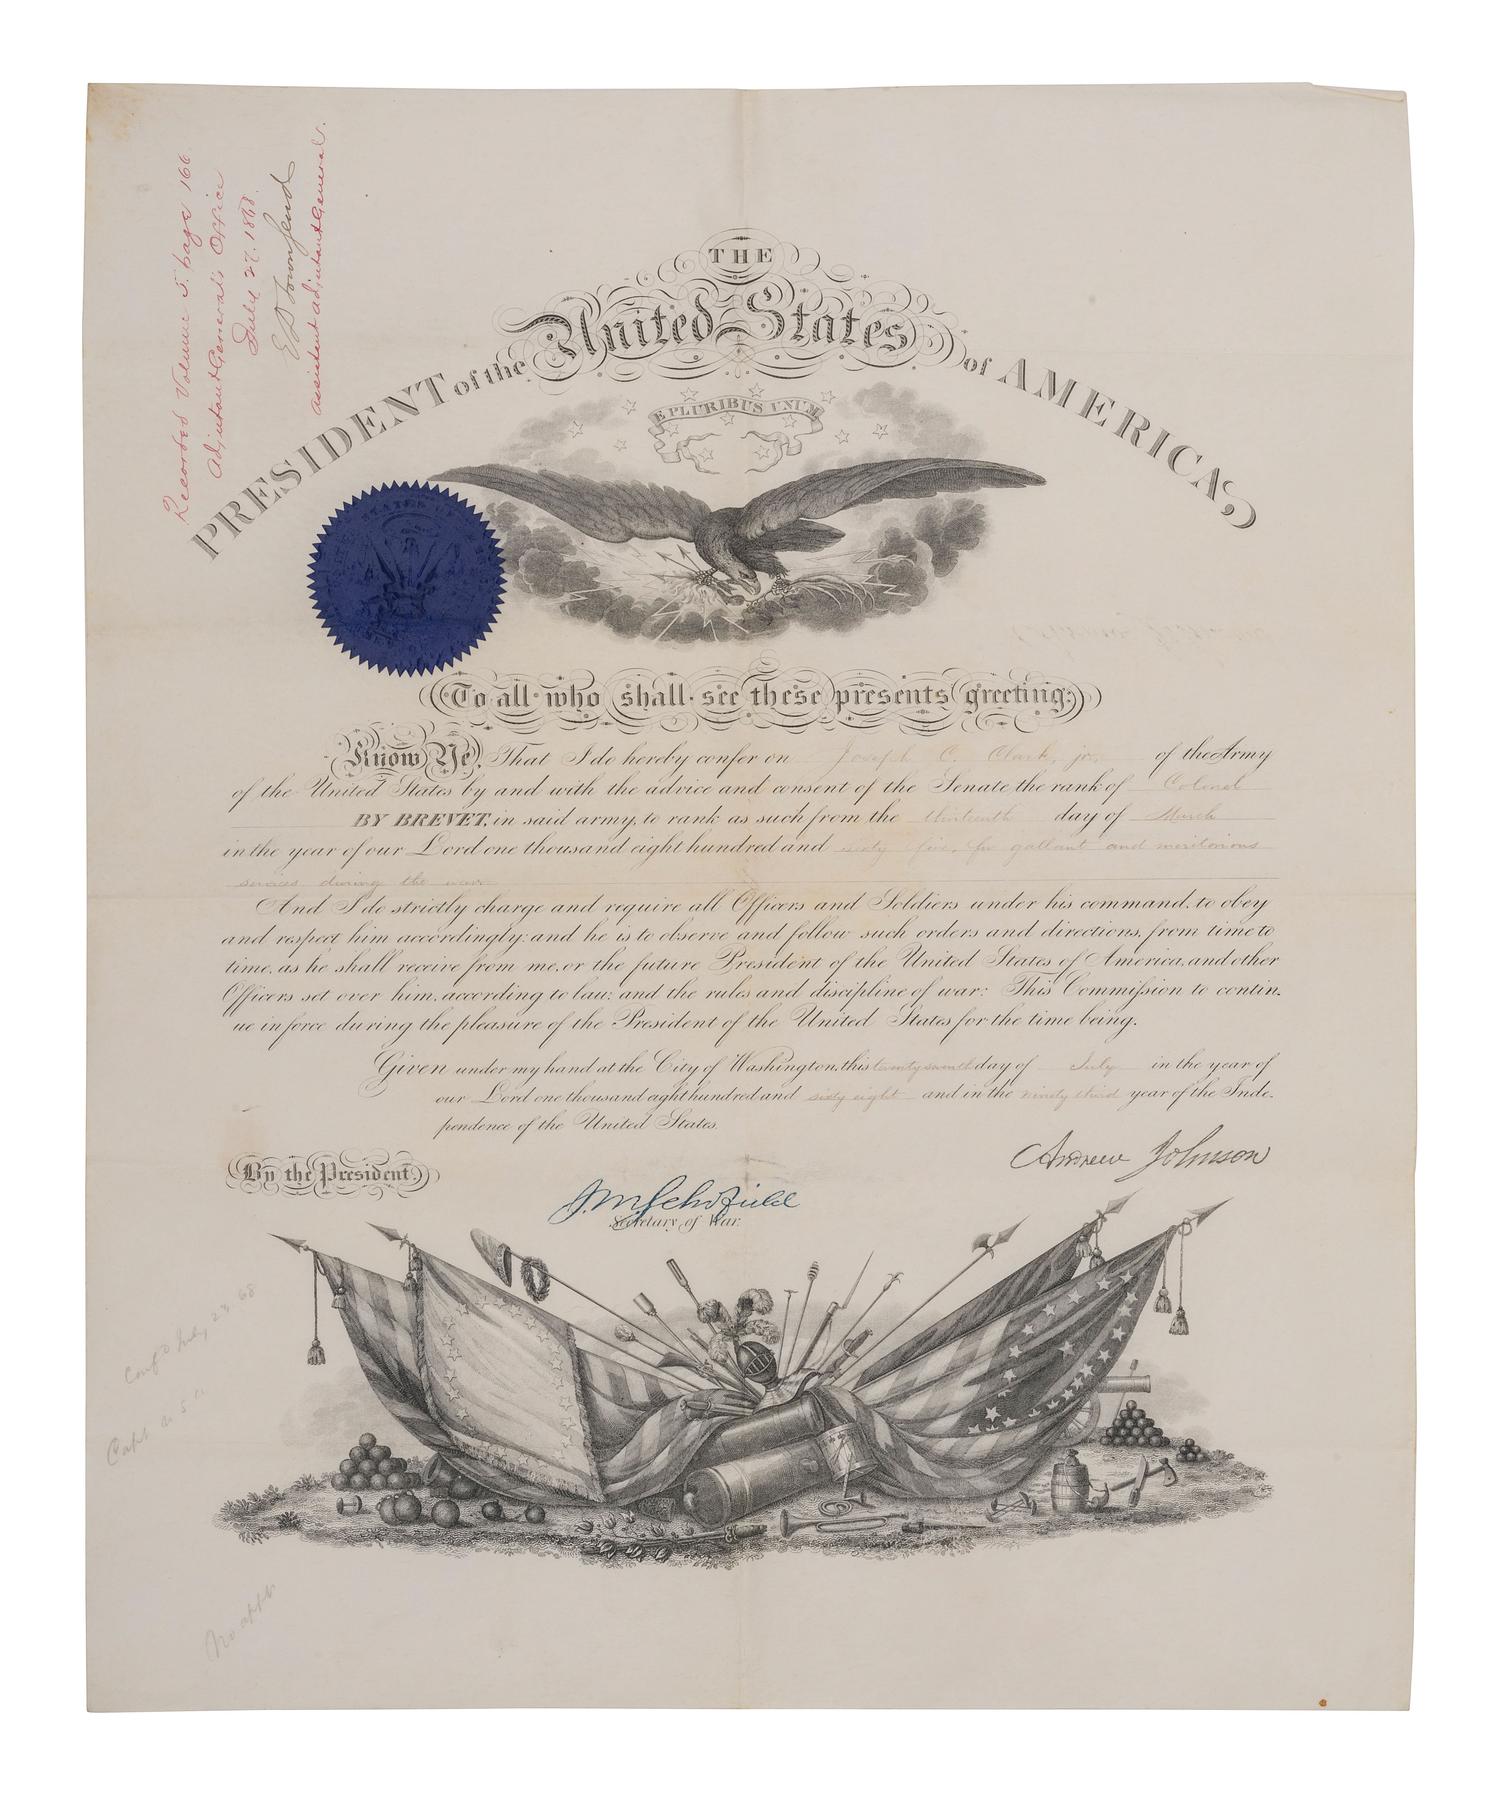 Recorded Volume 5. page 166
Adjutant General's Office
July 27. 1868.
E D Townsend
Assistant Adjutant General.
THE
PRESIDENT of the United States of AMERICA
E PLURIBUS UNUM
To all who shall see these presents greeting:
Know Ye, That I do hereby confer on Joseph C. Clark, jr. of the Army
of the United States by and with the advice and consent of the Senate the rank of Colonel
BY BREVET, in said army, to rank as such from the thirteenth day of March
in the year of our Lord one thousand eight hundred and sixty five, for gallant and meritorious
services during the war.
And I do strictly charge and require all Officers and Soldiers under his command, to obey
and respect him accordingly: and he is to observe and follow such orders and directions, from time to
time, as he shall receive from me, or the future President of the United States of America, and other
Officers set over him, according to law; and the rules and discipline of war: This Commission to contin-
ue in force during the pleasure of the President of the United States for the time being.
Given under my hand at the City of Washington, this twenty seventh day of July in the year of
our Lord one thousand eight hundred and sixty eight and in the ninety third year of the Inde-
pendence of the United States.
Andrew Johnson
By the President.
J.M. Schofield
Secretary of War.
Conf'd July, 23, 68
Capt. A. 5
No appt